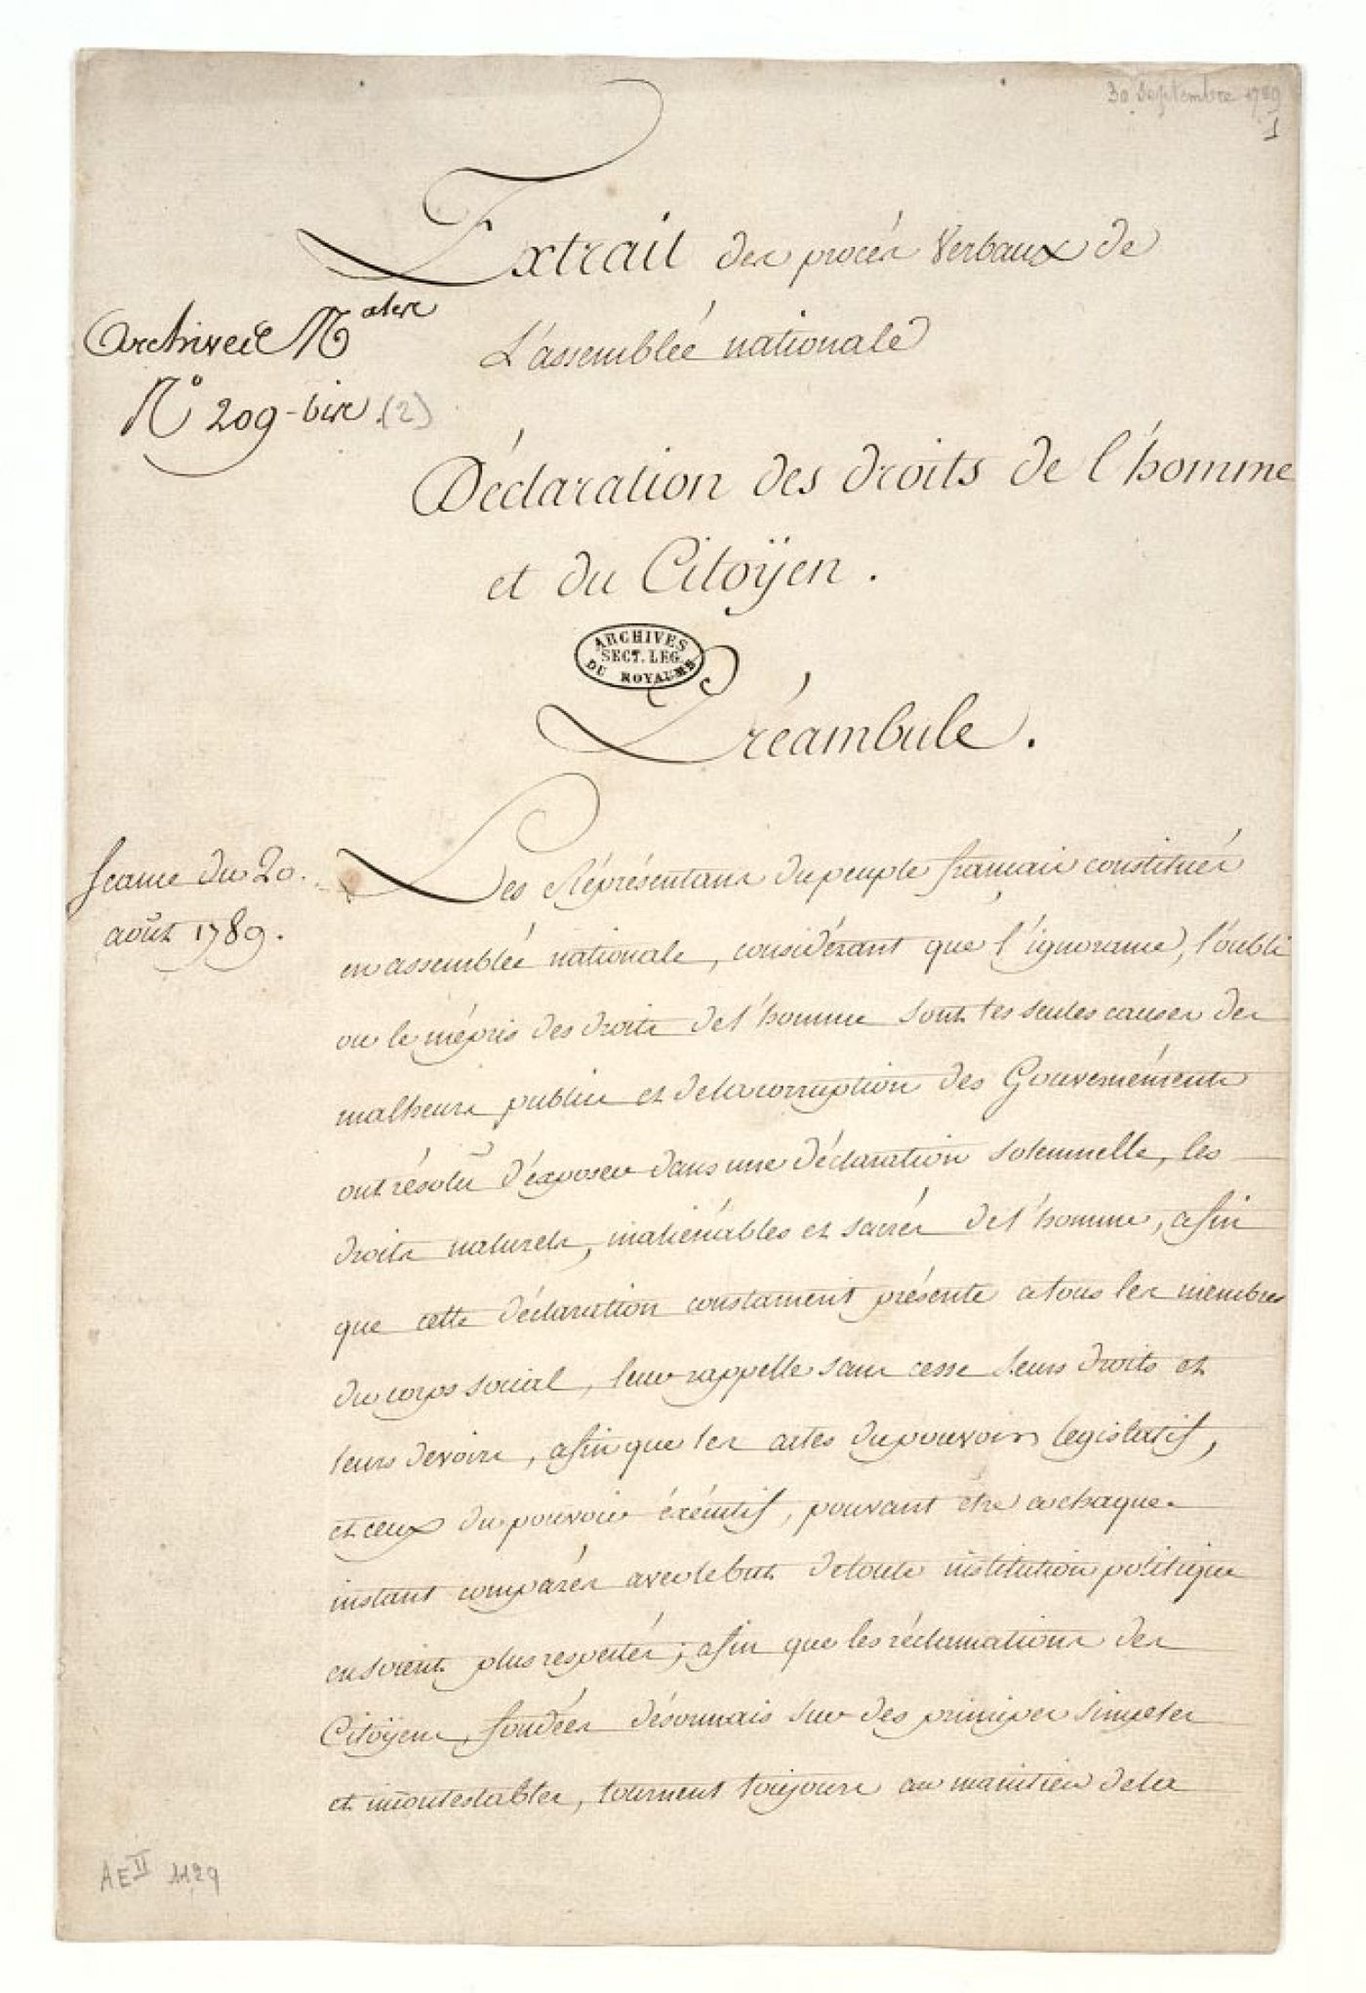 30 Septembre 1789
1
Extrait des procés Verbaux de
L'assemblée nationale
Archives Nales
N° 209-bis (2)
Déclaration des droits de l'homme
et du Citoÿen.
ARCHIVES
SECT. LEG.
DU ROYAUME
Préambule.
Séance du 20.
août 1789.
Les Réprésentans du peuple français constitués
en assemblée nationale, considérant que l'ignorance, l'oubli
ou le mépris des droits de l'homme sont les seules causes des
malheurs publics et de la corruption des Gouvernéments
ont résolu d'éxposer dans une déclaration solemnelle, les
droits naturels, inaliénables et sacrés de l'homme, afin
que cette déclaration constament présente a tous les membres
du corps social, leur rappelle sans cesse leurs droits et
leurs devoirs, afin que les actes du pouvoir législatif,
et ceux du pouvoir éxécutif, pouvant être a chaque
instant comparés avec le but de toute institution politique
en soient plus respectés; afin que les réclamations des
Citoÿens, fondées désormais sur des principes simples
et incontestables, tournent toujours au maintien de la
AE II 1129